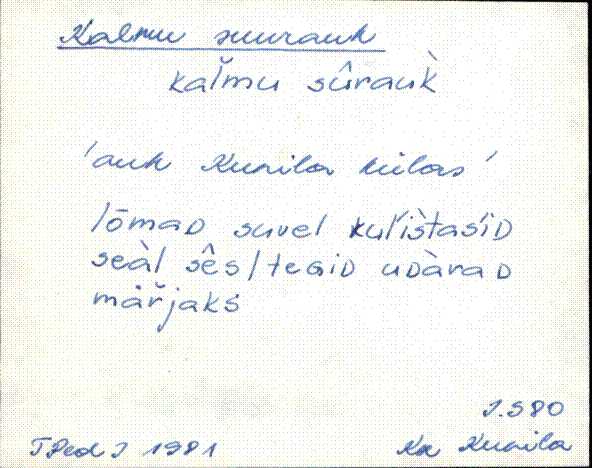 Kalmu suurauk
kal̆mu sûraùk
'auk Kunila külas'
lōmaD suvel kulìstasiD
seàl sês / tegiD uDàraD
mär̆jaks
J.580
TPed J 1981
Kx Kunila